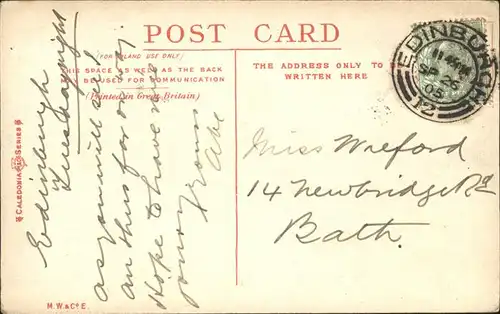 POST CARD
(FOR INLAND USE ONLY)
THIS SPACE AS WELL AS THE BACK
BE USED FOR COMMUNICATION
(Printed in Great Britain)
THE ADDRESS ONLY TO BE
WRITTEN HERE
EDINBURGH
05
12
CALEDONIA SERIES
M.W.& Co E.
Edinburgh
Tuesday night
as you will see I
am thus far on my
Hope to have
yours
Abe
Miss Wilford
14 Newbridge Rd
Bath.